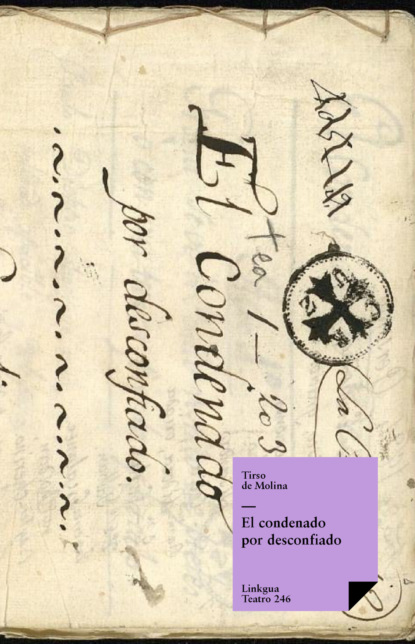 El Condenado
por desconfiado.
tea 1-203
La C
Tirso
de Molina
—
El condenado
por desconfiado
Linkgua
Teatro 246